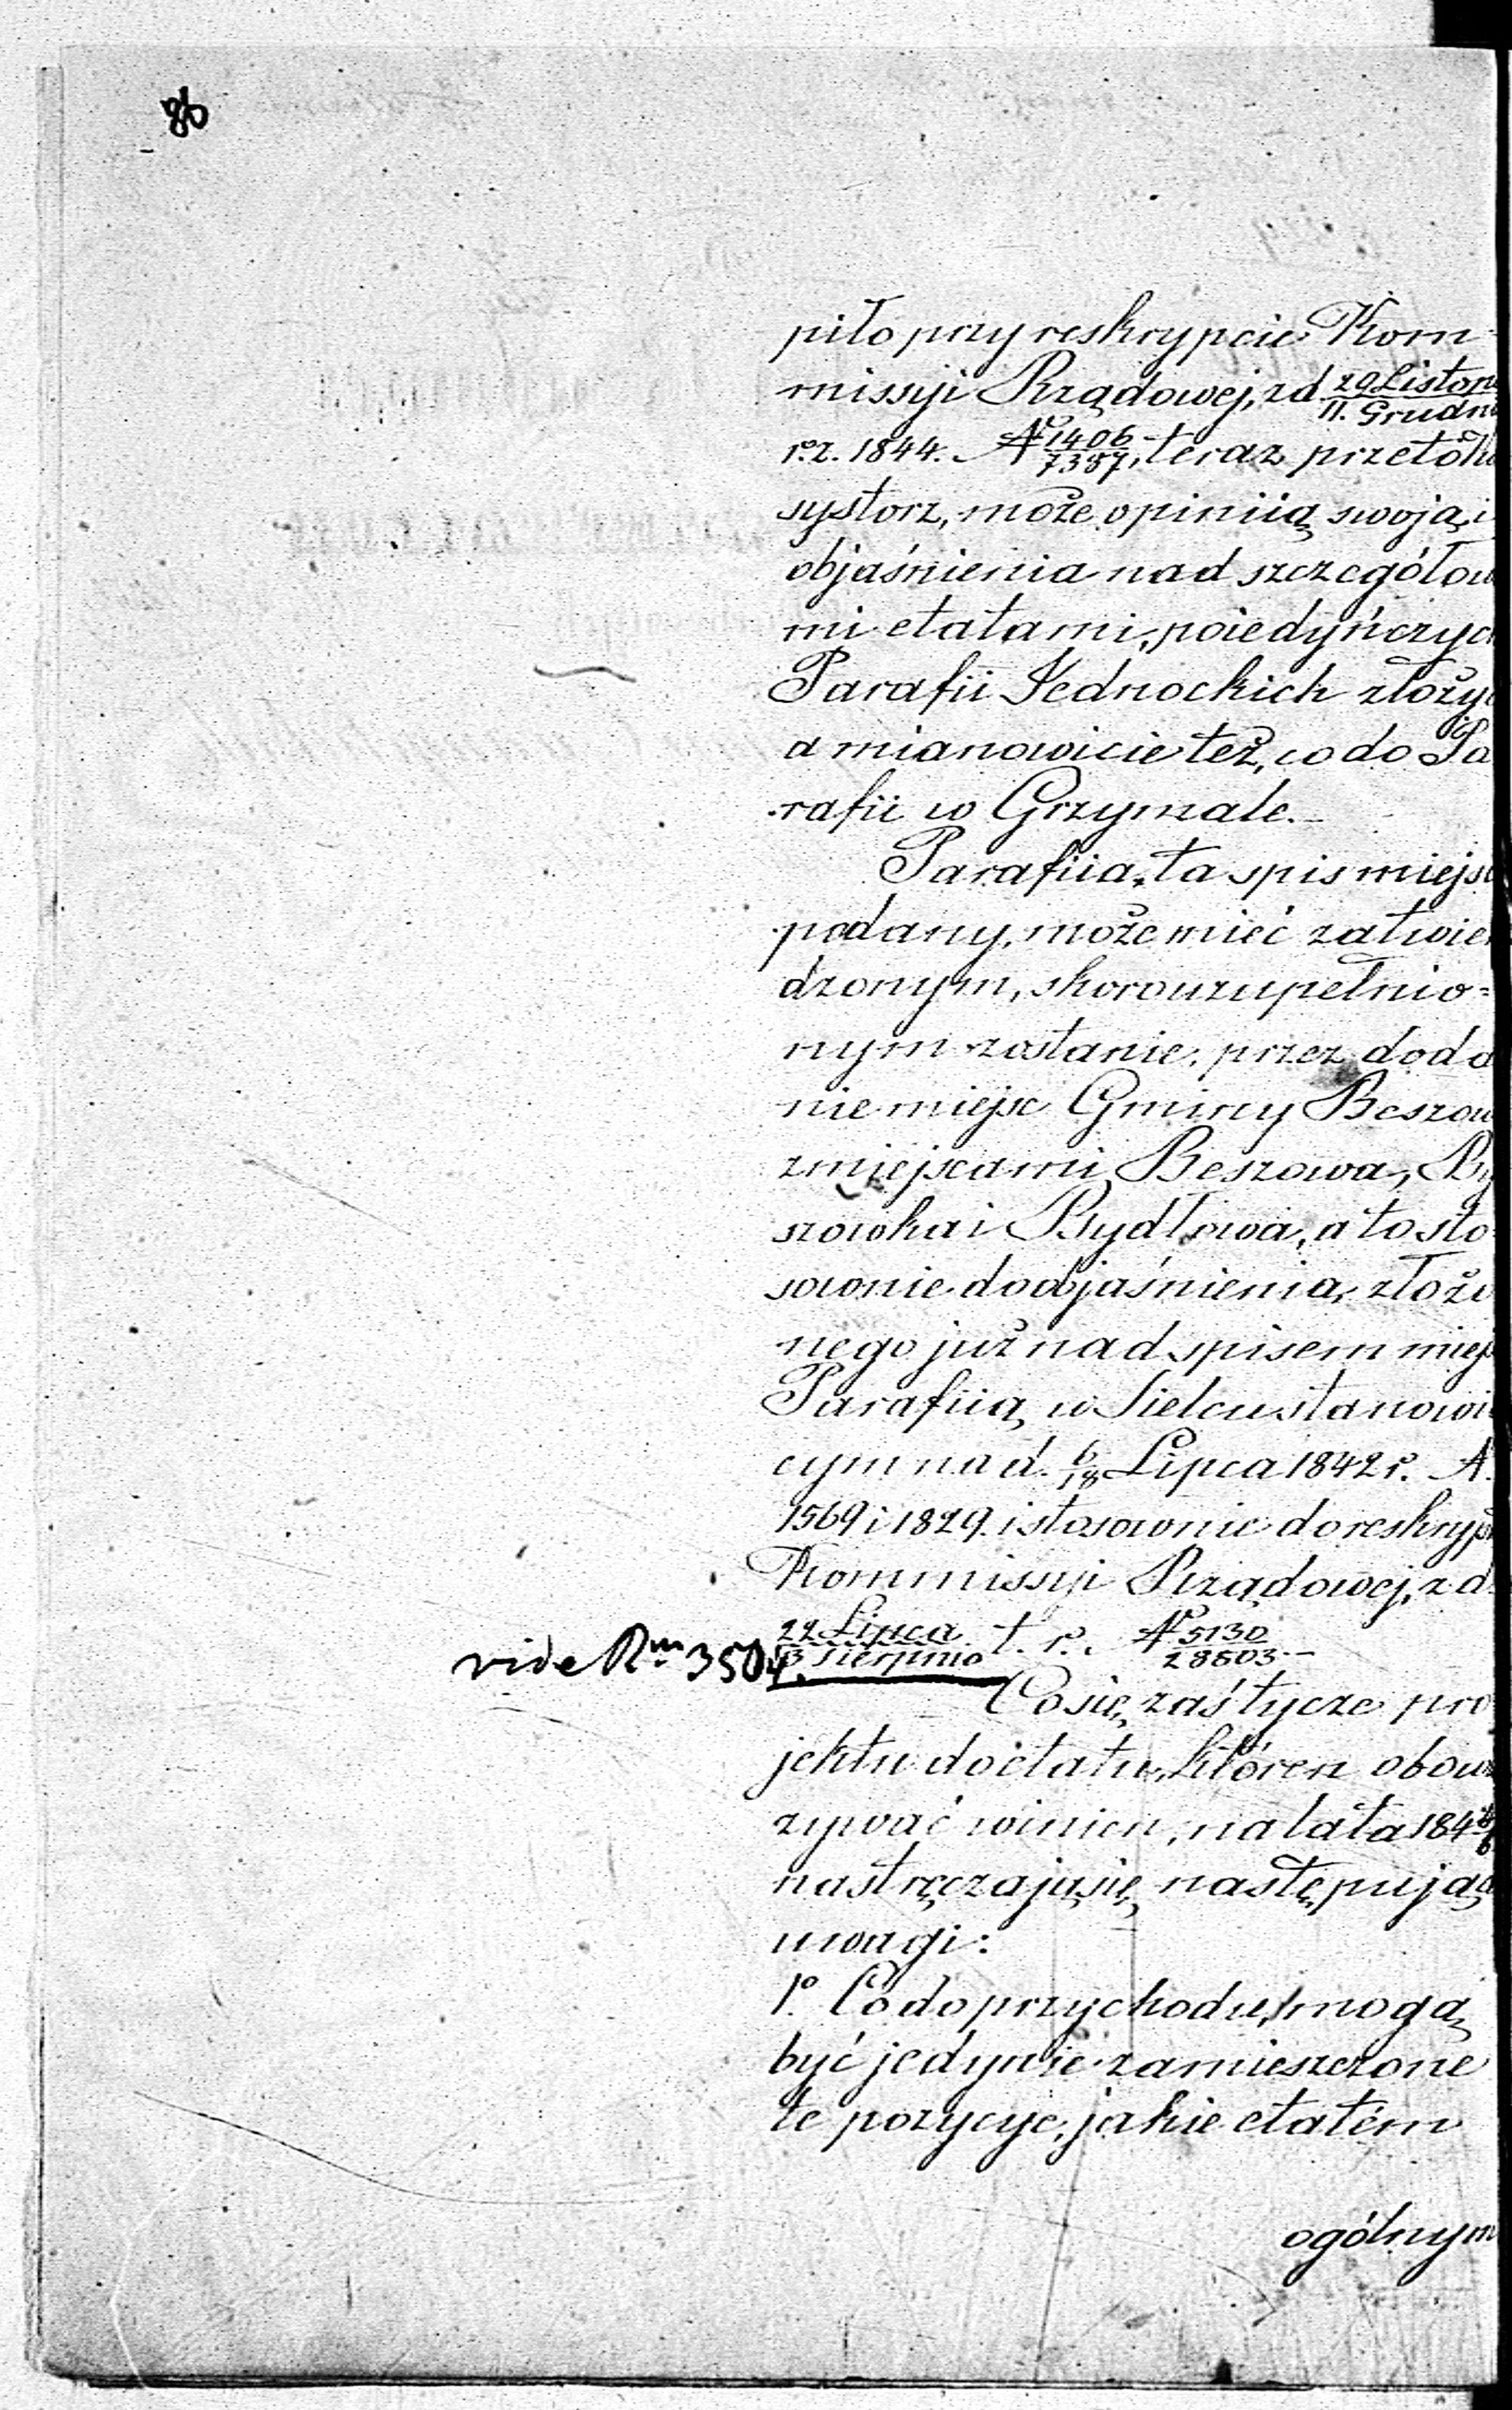 86
piło przy reskrypcie Kom-
missyi Rządowej, z d 29 Listop
11. Grudn
r. z. 1844. № 1406/7387, teraz przeto K
systorz, może opiniią swoją, i
objaśnienia nad szczegółow
mi etatami, poiedyńczyc
Parafii Jednockich złoży
a mianowicie też, co do Pa
rafii w Grzymale.-
Parafiia, ta spis miejs
podany, może mieć zatwie
dzonym, skoro uzupełnio=
nym zostanie, przez doda
nie miejsc Gminy Beszow
z miejscami Beszowa, By
szowka i Rydłowa, a to sto
sownie do objaśnienia, złożo
nego już nad spisem miej
Parafiią w Sielcu stanowi
cym na d. 6/18 Lipca 1842 r. №
1569 i 1829. i stosownie do reskryp
Kommissyi Rządowej, z d.
22 Lipca
3 Sierpnia t. r. № 5130/28603.-
vide Rm 3504.
Co się zaś tycze pro
jektu do etatu, któren obow
zywać winien, na lata 184
nastręczają się następując
uwagi:
1o. Co do przychodu, mogą
być jedynie zamieszczone
te pozycye, jakie etatem
ogólnym